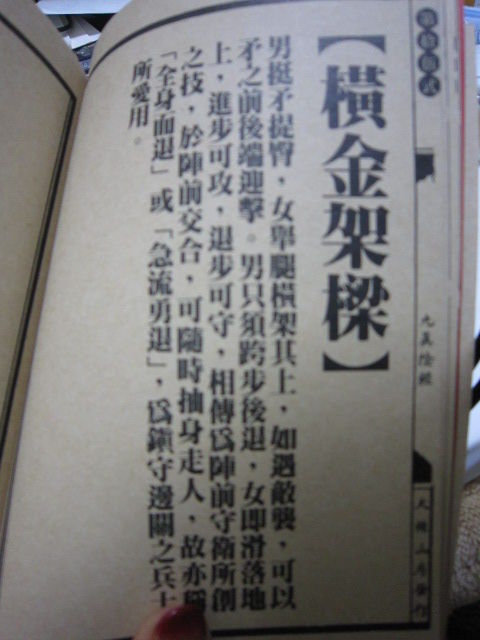 【橫金架樑】
男挺矛提臀，女舉腿橫架其上，如遇敵襲，可以
矛之前後端迎擊。男只須跨步後退，女即滑落地
上，進步可攻，退步可守，相傳爲陣前守衛所創
之技，於陣前交合，可隨時抽身走人，故亦稱
「全身而退」或「急流勇退」，爲鎭守邊關之兵士
所愛用。
九真陰經